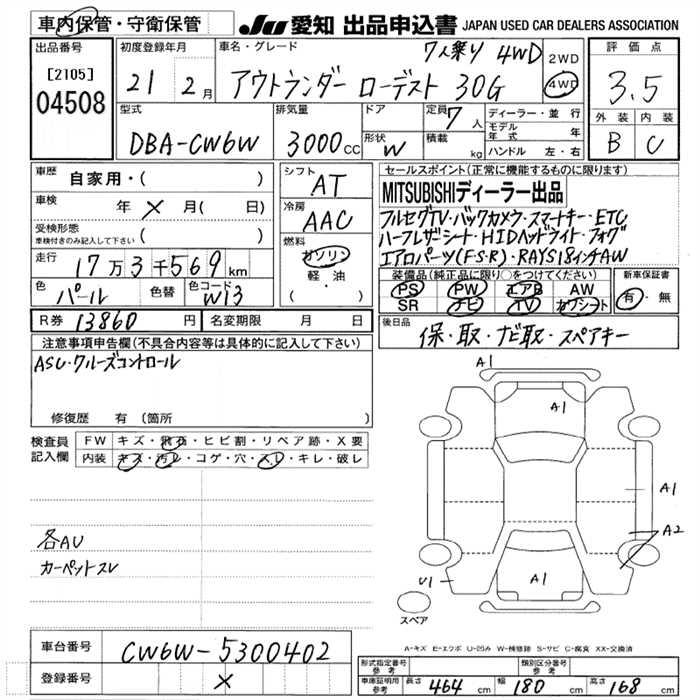 車内保管・守衛保管 JU 愛知 出品申込書 JAPAN USED CAR DEALERS ASSOCIATION
出品番号 初度登録年月 車名・グレード 7人乗り 4WD 2WD 評価点
[2105] 21 2月 アウトランダー ローデスト 30G 4WD 3.5
04508 型式 排気量 ドア 定員 7人 ディーラー・並行 外装 内装
DBA-CW6W 3000cc 形状 W 積載 kg モデル年式 年 B C
ハンドル 左・右
車歴 自家用・( ) シフト AT セールスポイント(正常に機能するものに限ります)
車検 年 × 月( 日) 冷房 AAC MITSUBISHIディーラー出品
受検形態 ( ) フルセグTV・バックカメラ・スマートキー・ETC
車検付きのみ記入して下さい 燃料 ハーフレザーシート・HIDヘッドライト・フォグ
走行 17万3千569km ガソリン エアロパーツ(FS・R)・RAYS18インチAW
色 パール 色替 色コード W13 軽・油 ( ) 装備品(純正品に限り○をつけてください) 新車保証書
PS PW エアB AW 有・無
SR ナビ TV カワシート
R券 13860円 名変期限 月 日 後日品 保・取・ナビ取・スペアキー
注意事項申告欄(不具合内容等は具体的に記入して下さい)
ASC・クルーズコントロール
修復歴 有 (箇所
検査員 FW キズ・飛石・ヒビ割・リペア跡・X要
記入欄 内装 キズ・汚レ・コゲ・穴・スレ・キレ・破レ
A1
A1
A1
A2
各AU
カーペットスレ
U1 A1
スペア
A-キズ E-エクボ U-凹み W-補修跡 S-サビ C-腐食 XX-交換済
車台番号 CW6W-5300402
登録番号 ×
形式指定番号 参考 類別区分番号 参考
車庫証明用 参考 長さ 464 cm 幅 180 cm 高さ 168 cm